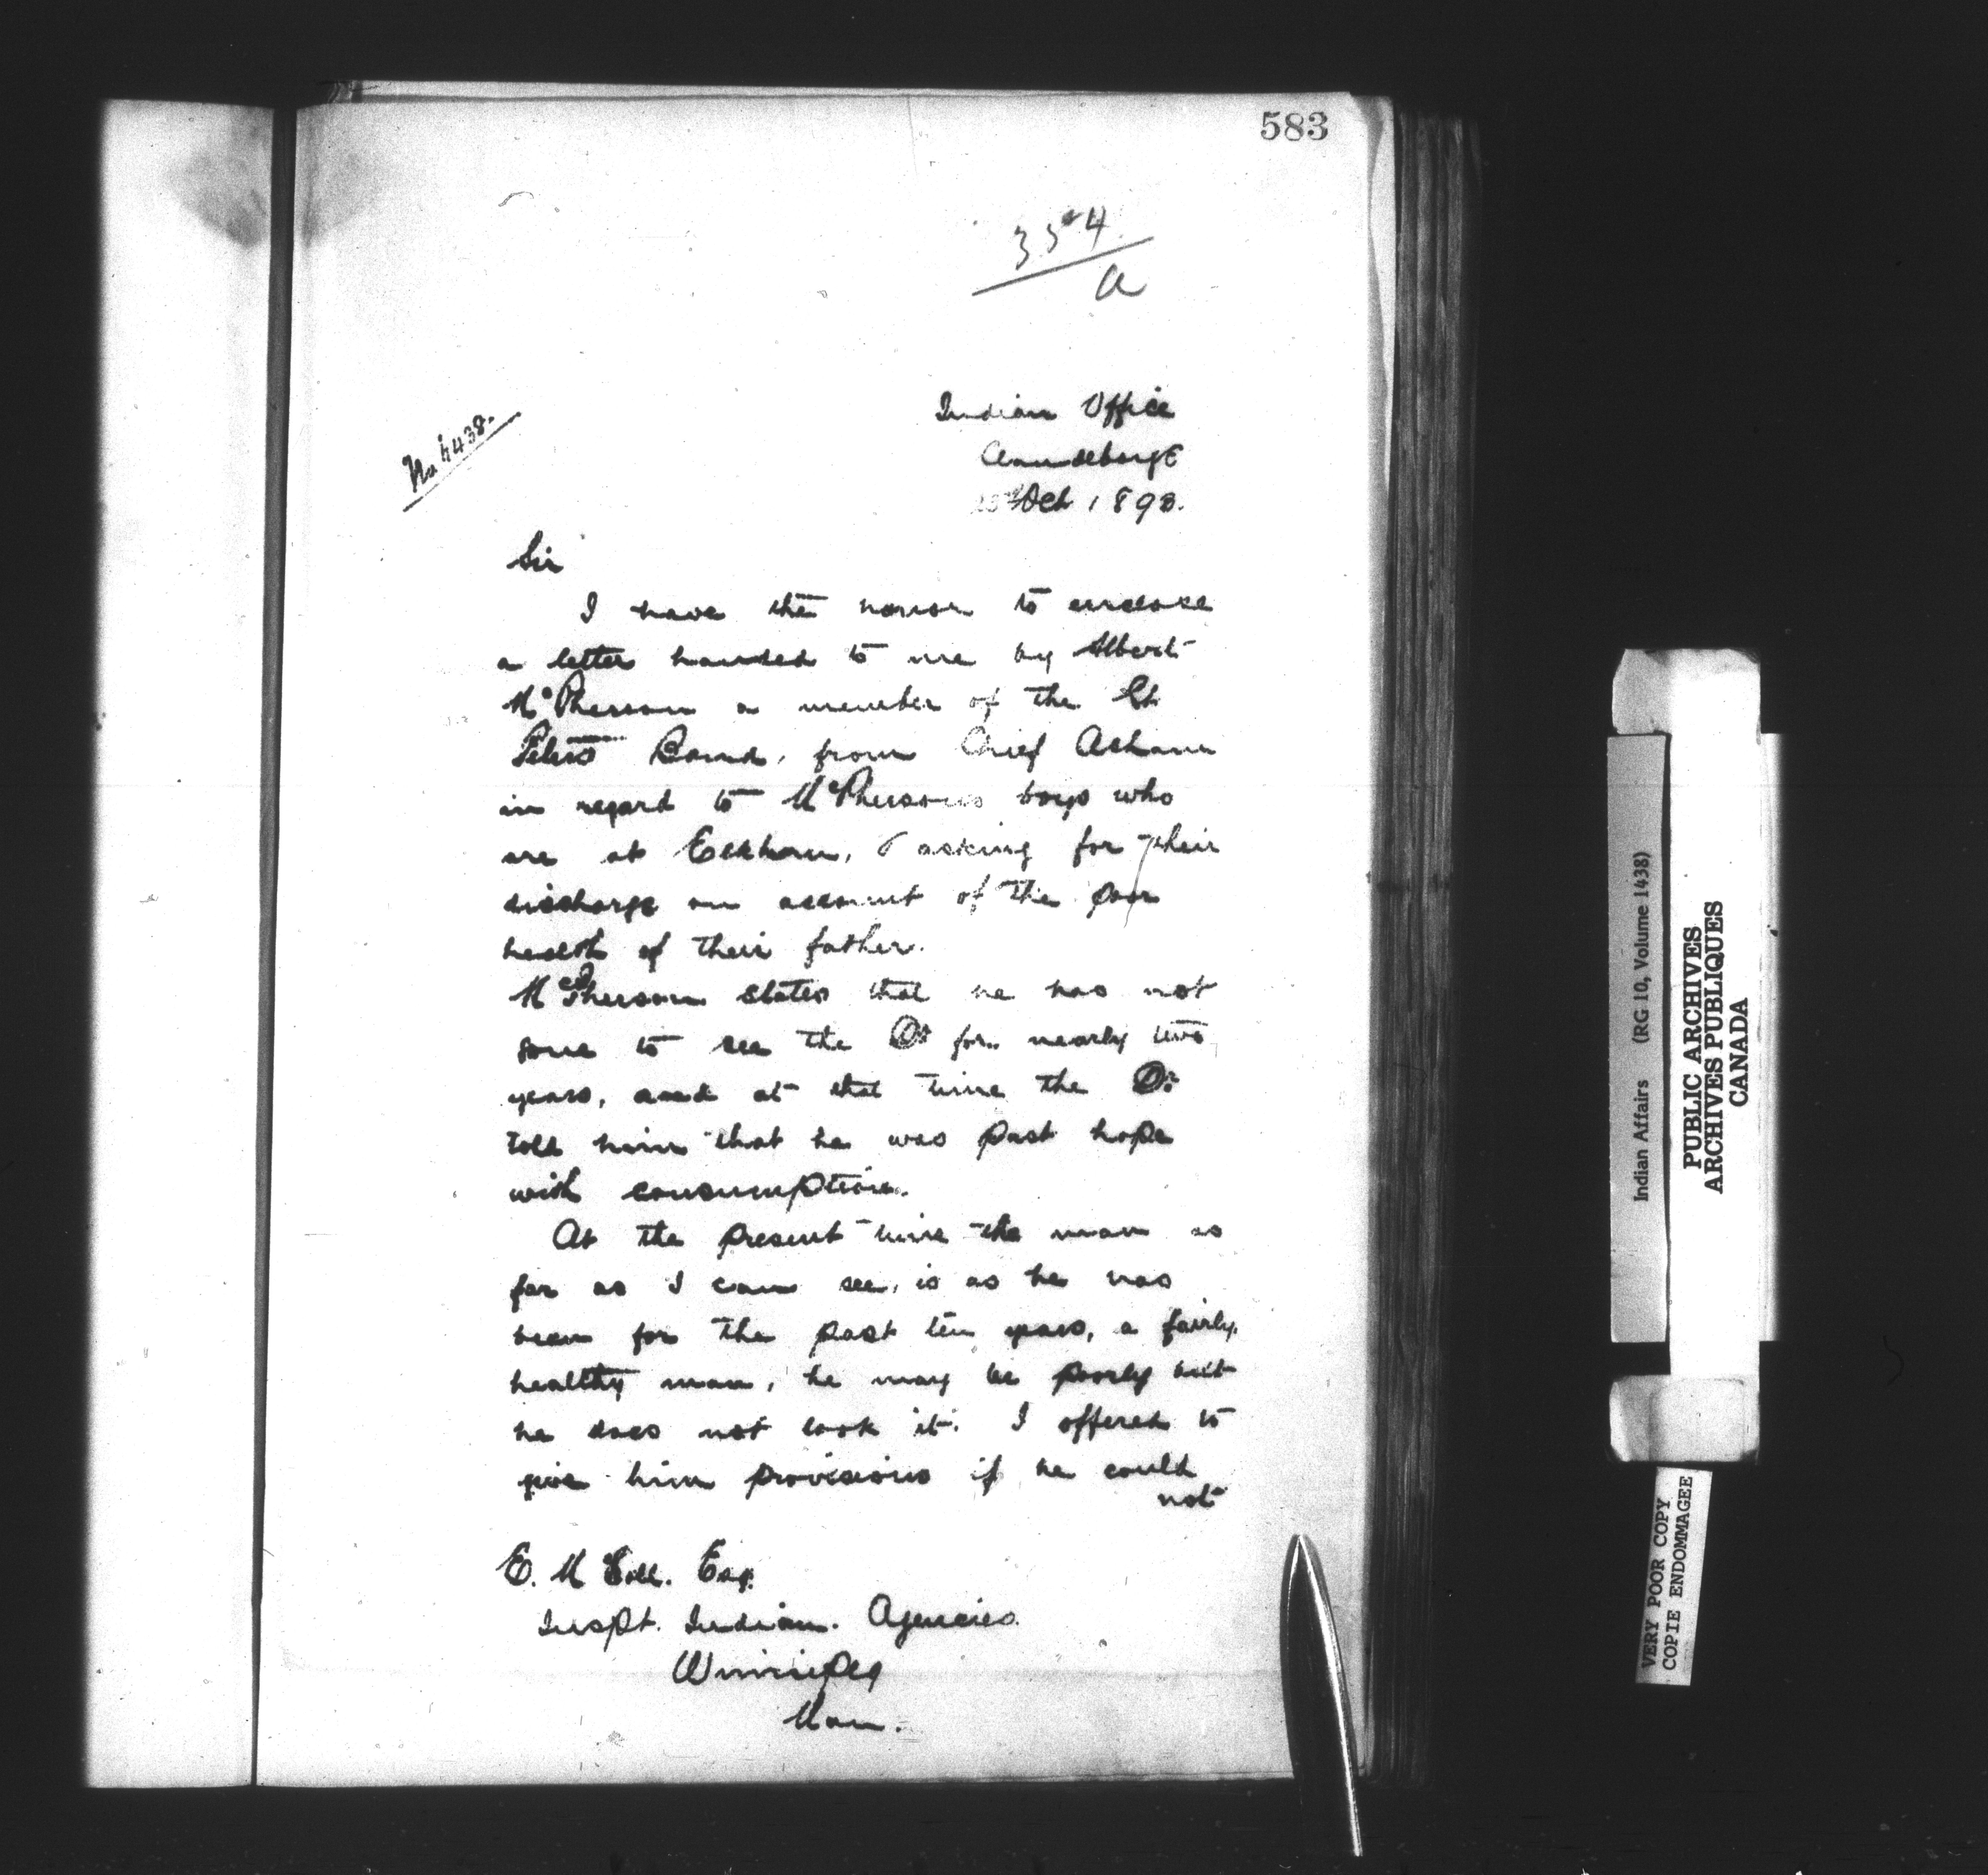 583
354
a
No 4438.
Indian Office
Clandeboye
Oct 1893.
Sir
I have the honor to enclose
a letter handed to me by Albert
McPherson a member of the St
Peters Band, from Chief Asham
in regard to McPhersons boys who
are at Elkhorn, & asking for their
discharge on account of the poor
health of their father.
McPherson states that he has not
gone to see the Dr for nearly two
years, and at that time the Dr
told him that he was past hope
with consumption.
At the present time the man as
far as I can see, is as he has
been for the past ten years, a fairly
healthy man, he may be poorly but
he does not look it. I offered to
give him provisions if he could
not
E. McColl. Esq.
Inspt. Indian. Agencies.
Winnipeg
Man.
Indian Affairs (RG 10, Volume 1438)
PUBLIC ARCHIVES
ARCHIVES PUBLIQUES
CANADA
VERY POOR COPY
COPIE ENDOMMAGEE